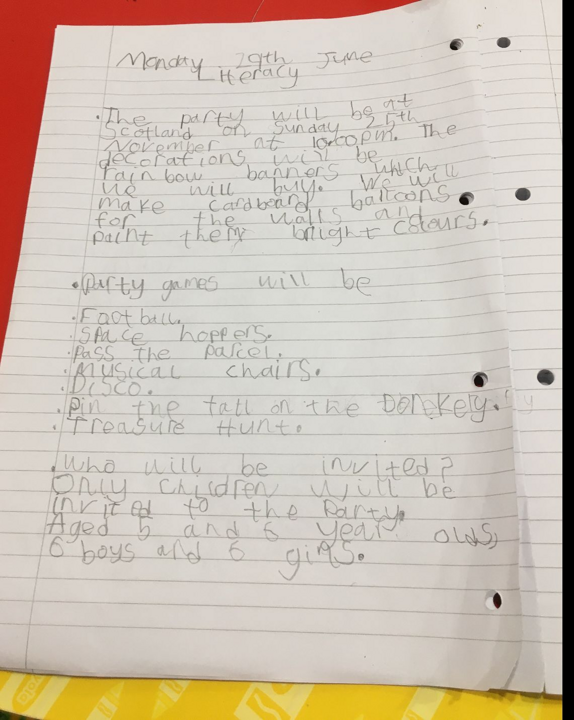 Monday 29th June
Literacy
• The party will be at
Scotland on Sunday 25th
November at 10:00pm. The
decorations will be
rainbow banners which
we will buy. We will
make cardboard balloons
for the walls and
paint them bright colours.
• Party games will be
• Football.
• Space hoppers.
• Pass the parcel.
• Musical chairs.
• Disco.
• Pin the tall on the Donekely.
• Treasure Hunt.
• Who will be invited?
Only children will be
invited to the Party.
Aged 5 and 6 year olds,
6 boys and 6 girls.